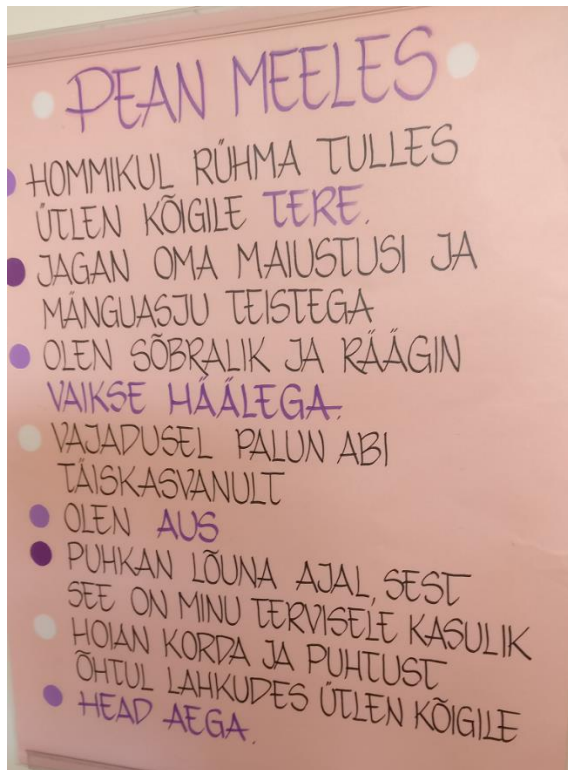 PEAN MEELES
HOMMIKUL RÜHMA TULLES
ÜTLEN KÕIGILE TERE.
JAGAN OMA MAIUSTUSI JA
MÄNGUASJU TEISTEGA
OLEN SÕBRALIK JA RÄÄGIN
VAIKSE HÄÄLEGA.
VAJADUSEL PALUN ABI
TÄISKASVANULT
OLEN AUS
PUHKAN LÕUNA AJAL, SEST
SEE ON MINU TERVISELE KASULIK
HOIAN KORDA JA PUHTUST
ÕHTUL LAHKUDES ÜTLEN KÕIGILE
HEAD AEGA.